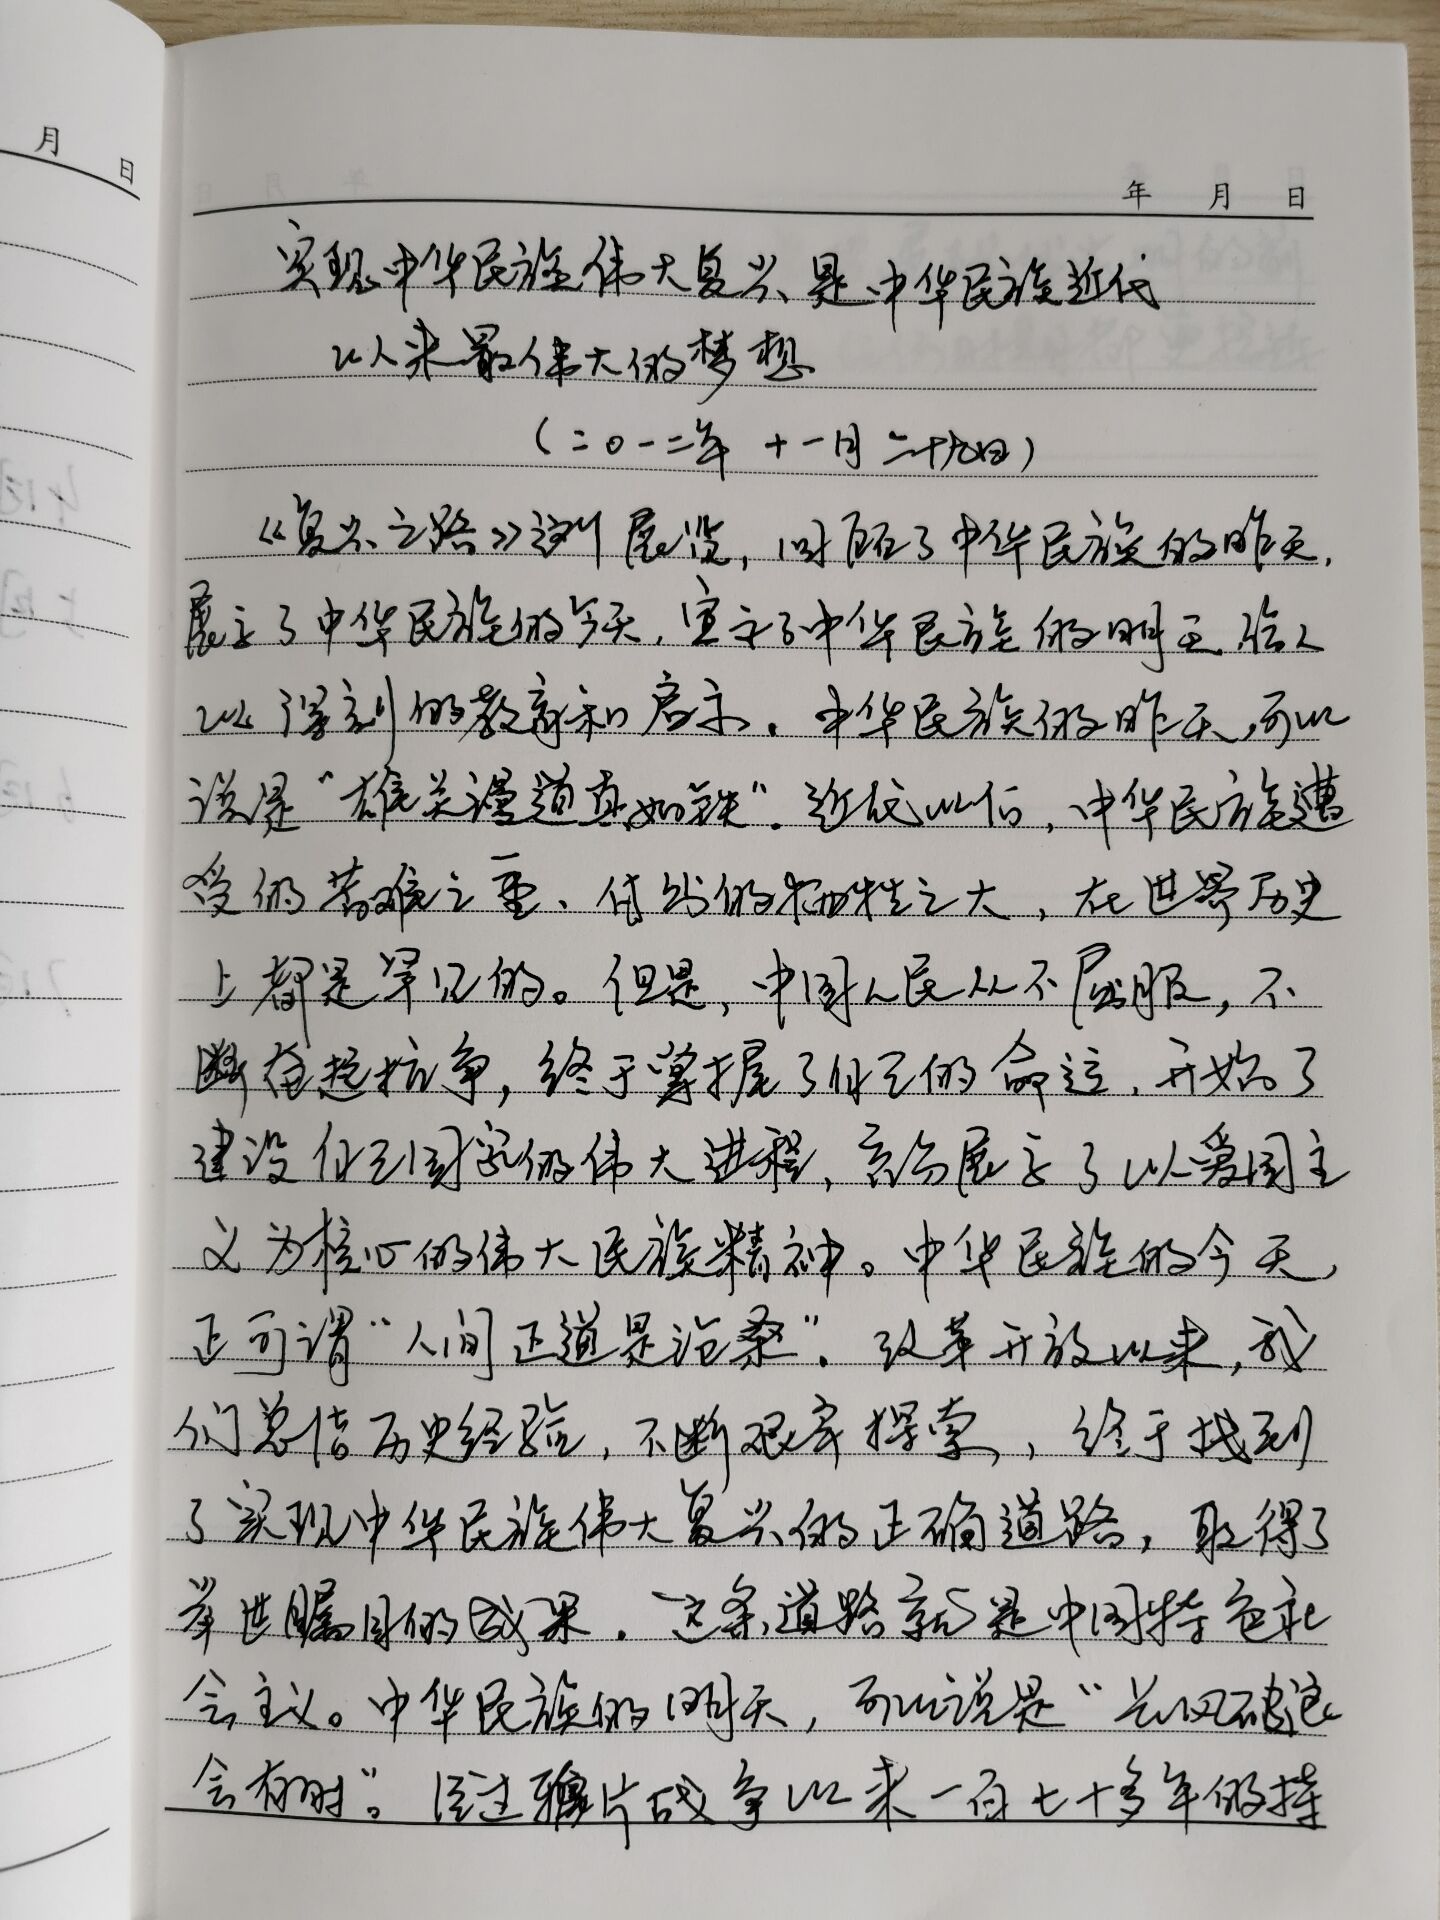 月 日
年 月 日
实现中华民族伟大复兴是中华民族近代
以来最伟大的梦想
(二〇一二年十一月二十九日)
《复兴之路》这个展览,回顾了中华民族的昨天,
展示了中华民族的今天,宣示了中华民族的明天,给人
以深刻的教育和启示。中华民族的昨天,可以
说是“雄关漫道真如铁”。近代以后,中华民族遭
受的苦难之重、付出的牺牲之大,在世界历史
上都是罕见的。但是,中国人民从不屈服,不
断奋起抗争,终于掌握了自己的命运,开始了
建设自己国家的伟大进程,充分展示了以爱国主
义为核心的伟大民族精神。中华民族的今天,
正可谓“人间正道是沧桑”。改革开放以来,我
们总结历史经验,不断艰辛探索,终于找到
了实现中华民族伟大复兴的正确道路,取得了
举世瞩目的成果。这条道路就是中国特色社
会主义。中华民族的明天,可以说是“长风破浪
会有时”。经过鸦片战争以来一百七十多年的持